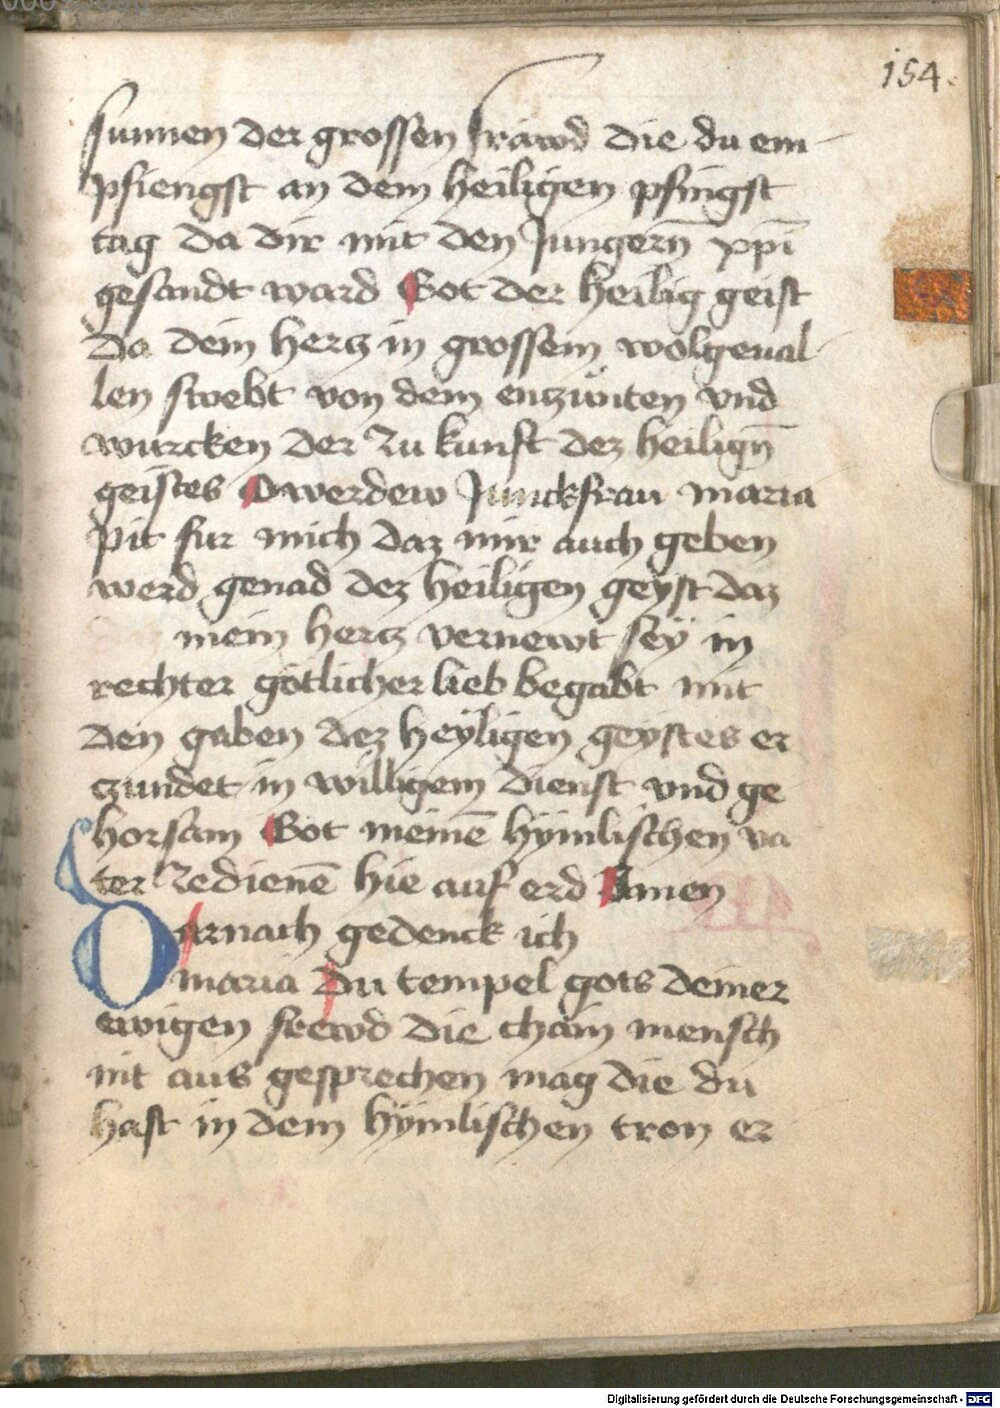 154
sunnen der grossen frawd die du em
pfiengst an dem heiligen pfingst
tag da dir mit den Jungern̄ xp̄i
gesandt ward Got der heilig geist
Da dein hertz in grossem wolgeual
len swebt von dem enzunten vnd
wurcken der zu kunft dez heilign̄
geistes O werdew Junckfrau maria
pit fur mich daz mir auch geben
werd genad dez heiligen geyst daz
mein hertz vernewt seÿ in
rechter gotlicher lieb begabt mit
den gaben dez heÿligen geÿstes er
zundet in willigem dienst vnd ge
horsam Got meinē hÿmlischen va
ter zedienē hie auf erd Amen
Darnach gedenck ich
maria Du tempel gots deiner
ewigen frewd die chain mensch
nit aus gesprechen mag die du
hast in dem hÿmlischen tron er
Digitalisierung gefördert durch die Deutsche Forschungsgemeinschaft - DFG